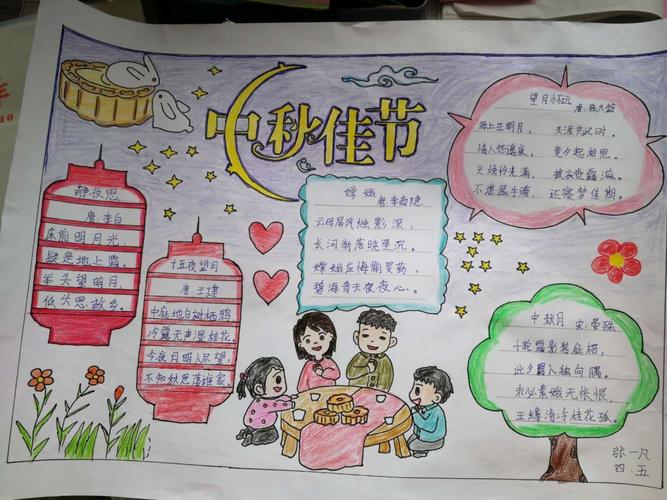 中秋佳节
静夜思
唐:李白
床前明月光,
疑是地上霜。
举头望明月,
低头思故乡。
十五夜望月
唐:王建
中庭地白树栖鸦
冷露无声湿桂花。
今夜月明人尽望,
不知秋思落谁家。
嫦娥
唐.李商隐
云母屏风烛影深,
长河渐落晓星沉。
嫦娥应悔偷灵药,
碧海青天夜夜心。
望月怀远
唐:张九龄
海上生明月, 天涯共此时。
情人怨遥夜, 竟夕起相思。
灭烛怜光满, 披衣觉露滋。
不堪盈手赠, 还寝梦佳期。
中秋月 宋:晏殊
十轮霜影转庭梧,
此夕羁人独向隅。
未必素娥无怅恨,
玉蟾清冷桂花孤。
张一凡
四.五